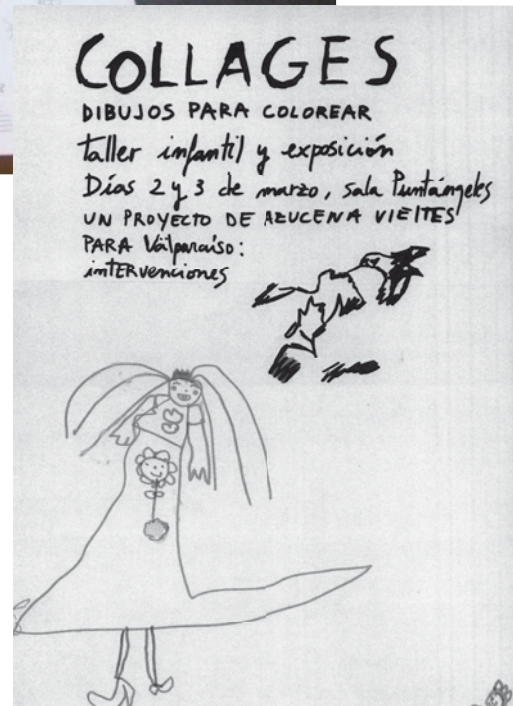 COLLAGES
DIBUJOS PARA COLOREAR
taller infantil y exposición
Días 2 y 3 de marzo, sala Puntángeles
UN PROYECTO DE AZUCENA VIEITES
PARA Valparaíso:
intervenciones